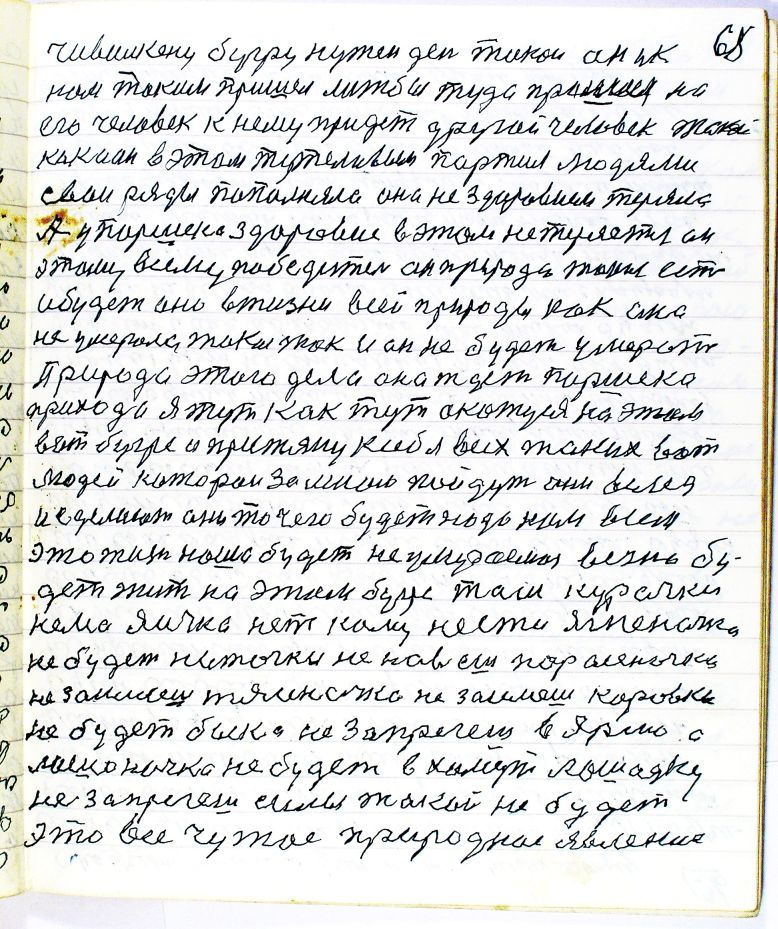 68
чивилкену бугру нужен ден такои он ик
ном таким пришел лижбы туда пришол на
его человек к нему придет другой человек такой
как и он в этом терпеливым партия людями
свои ряды пополняла она не здоровием теряла
А у паршека здоровие в этом нетеряется он
этому всему победител он природа така есть
и будет оно в жизни всей природы как она
не умерала, така так и он не будет умерать
Природа этого дела она ждет паршека
прихода я тут как тут окажуся на этом
вот бугре и притяну к себя всех таких вот
людей которои за мною пойдут они
и сделают они то чего будет надо нам всем
это жизн наша будет не умираемая вечно бу-
дет жить на этом бугре там курочки
нема яичка нет кому нести ягненачка
не будет ниточки не поросеночка
не заимееш тяленачка не заимеш коровки
не будет быка не запрегеш в Ярмо а
лашоночка не будет в хамут лошадку
не запрегеш силы такой не будет
это все чужое природное явление